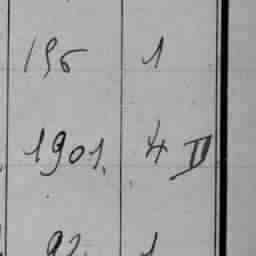 195 1
1901. 4 II
92. 1